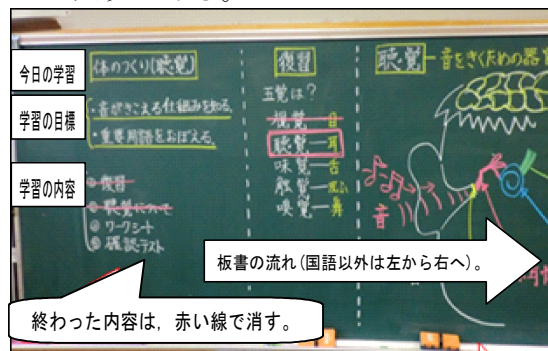 今日の学習
学習の目標
学習の内容
体のつくり(聴覚)
・音がきこえる仕組みを知る。
・重要用語をおぼえる。
① 復習
② 聴覚について
③ ワークシート
④ 確認テスト
復習
五覚は?
視覚―目
聴覚―耳
味覚―舌
触覚―皮ふ
嗅覚―鼻
聴覚―音をきくための器官
音
板書の流れ(国語以外は左から右へ)。
終わった内容は,赤い線で消す。